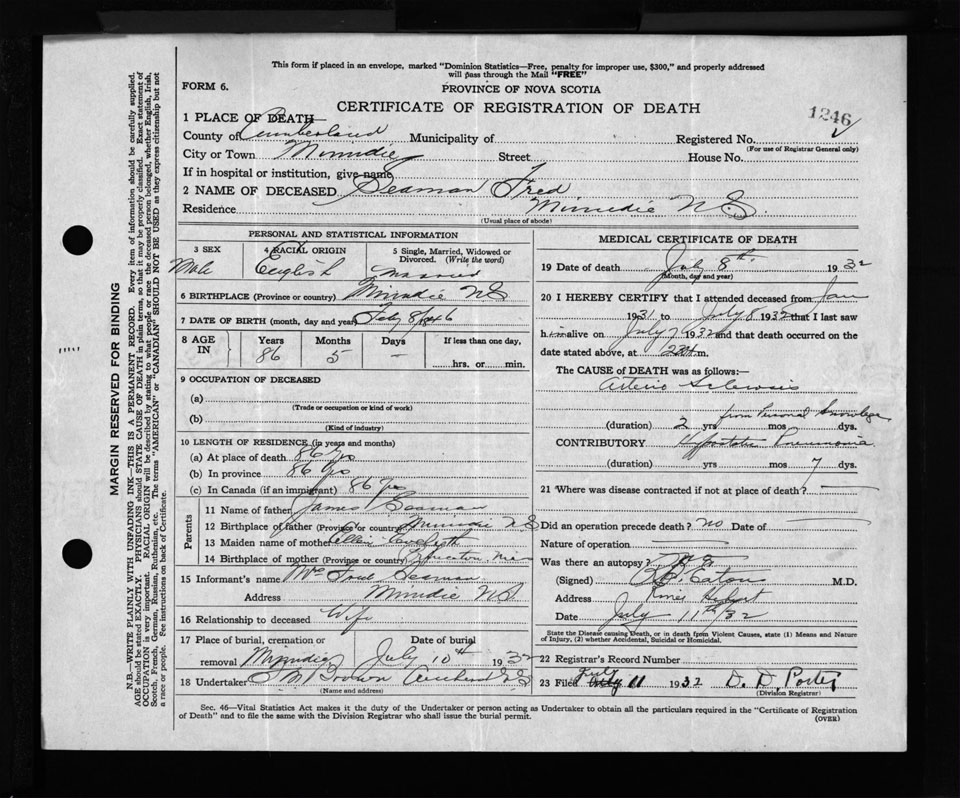 This form if placed in an envelope, marked "Dominion Statistics—Free, penalty for improper use, $300," and properly addressed
will pass through the Mail "FREE"
FORM 6.
PROVINCE OF NOVA SCOTIA
CERTIFICATE OF REGISTRATION OF DEATH
1246
1 PLACE OF DEATH—
County of Cumberland Municipality of Registered No.
(For use of Registrar General only)
City or Town Minudie Street House No.
If in hospital or institution, give name
2 NAME OF DECEASED Seaman Fred
Residence Minudie N.S.
(Usual place of abode)
PERSONAL AND STATISTICAL INFORMATION
3 SEX 4 RACIAL ORIGIN 5 Single, Married, Widowed or
Divorced. (Write the word)
Male English Married
6 BIRTHPLACE (Province or country) Minudie NS
7 DATE OF BIRTH (month, day and year) 1846
8 AGE IN Years Months Days If less than one day,
86 5 – hrs. or min.
9 OCCUPATION OF DECEASED
(a)
(Trade or occupation or kind of work)
(b)
(Kind of industry)
10 LENGTH OF RESIDENCE (in years and months)
(a) At place of death 86 yrs
(b) In province 86 yrs
(c) In Canada (if an immigrant) 86 yrs
Parents
11 Name of father James Seaman
12 Birthplace of father (Province or country) Minudie NS
13 Maiden name of mother
14 Birthplace of mother (Province or country)
15 Informant's name Mrs Seaman
Address Minudie NS
16 Relationship to deceased Wife
17 Place of burial, cremation or Date of burial
removal Minudie July 10th 1932
18 Undertaker Brown Amherst NS
(Name and address)
MEDICAL CERTIFICATE OF DEATH
19 Date of death July 8th 1932
(Month, day and year)
20 I HEREBY CERTIFY that I attended deceased from Jan
1931 to July 8 1932 that I last saw
him alive on July 7 1932 and that death occurred on the
date stated above, at m.
The CAUSE OF DEATH was as follows:
Arterio Sclerosis
from Personal Knowledge
(duration) 2 yrs mos dys.
CONTRIBUTORY Hypostatic Pneumonia
(duration) yrs mos 7 dys.
21 Where was disease contracted if not at place of death?
Did an operation precede death? No Date of
Nature of operation
Was there an autopsy?
(Signed) Eaton M.D.
Address River Hebert
Date July 11th/32
State the Disease causing Death, or in death from Violent Causes, state (1) Means and Nature
of Injury, (2) whether Accidental, Suicidal or Homicidal.
22 Registrar's Record Number
23 Filed July 11 1932 D. D. Porter
(Division Registrar)
Sec. 46—Vital Statistics Act makes it the duty of the Undertaker or person acting as Undertaker to obtain all the particulars required in the "Certificate of Registration
of Death" and to file the same with the Division Registrar who shall issue the burial permit.
(OVER)
MARGIN RESERVED FOR BINDING
N.B.—WRITE PLAINLY WITH UNFADING INK—THIS IS A PERMANENT RECORD. Every item of information should be carefully supplied.
AGE should be stated EXACTLY. PHYSICIANS should STATE CAUSE OF DEATH in plain terms, so that it may be properly classified. Exact statement of
OCCUPATION is very important. RACIAL ORIGIN will be described by stating to what people or race the deceased person belonged, whether English, Irish,
Scotch, French, German, Russian, Ruthenian, etc. The terms "AMERICAN" or "CANADIAN" SHOULD NOT BE USED as they express citizenship but not
a race or people. See instructions on back of Certificate.